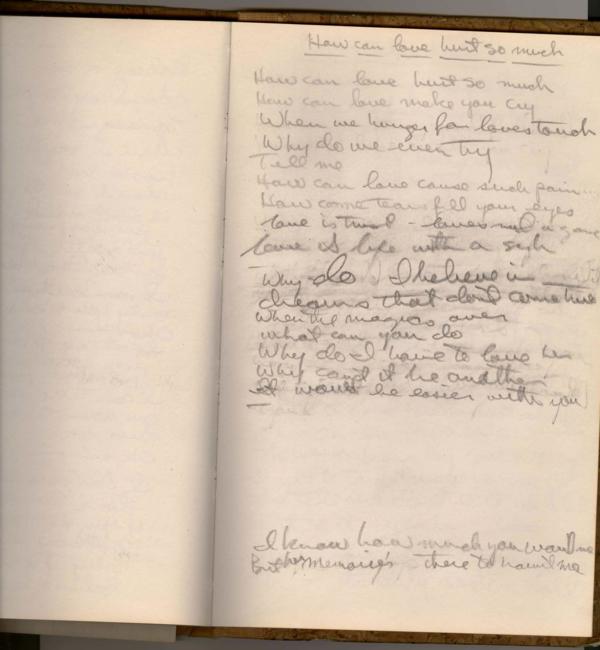 How can love hurt so much
How can love hurt so much
How can love make you cry
When we hunger for loves touch
Why do we even try
Tell me
How can love cause such pain...
How come tears fill your eyes
love is trust - loves not a game
love is life with a sigh
Why do I believe in
dreams that dont come true
When the magics over
what can you do
Why do I have to love her
Why cant it be another
It would be easier with you
I know how much you want me
But her memories there to haunt me